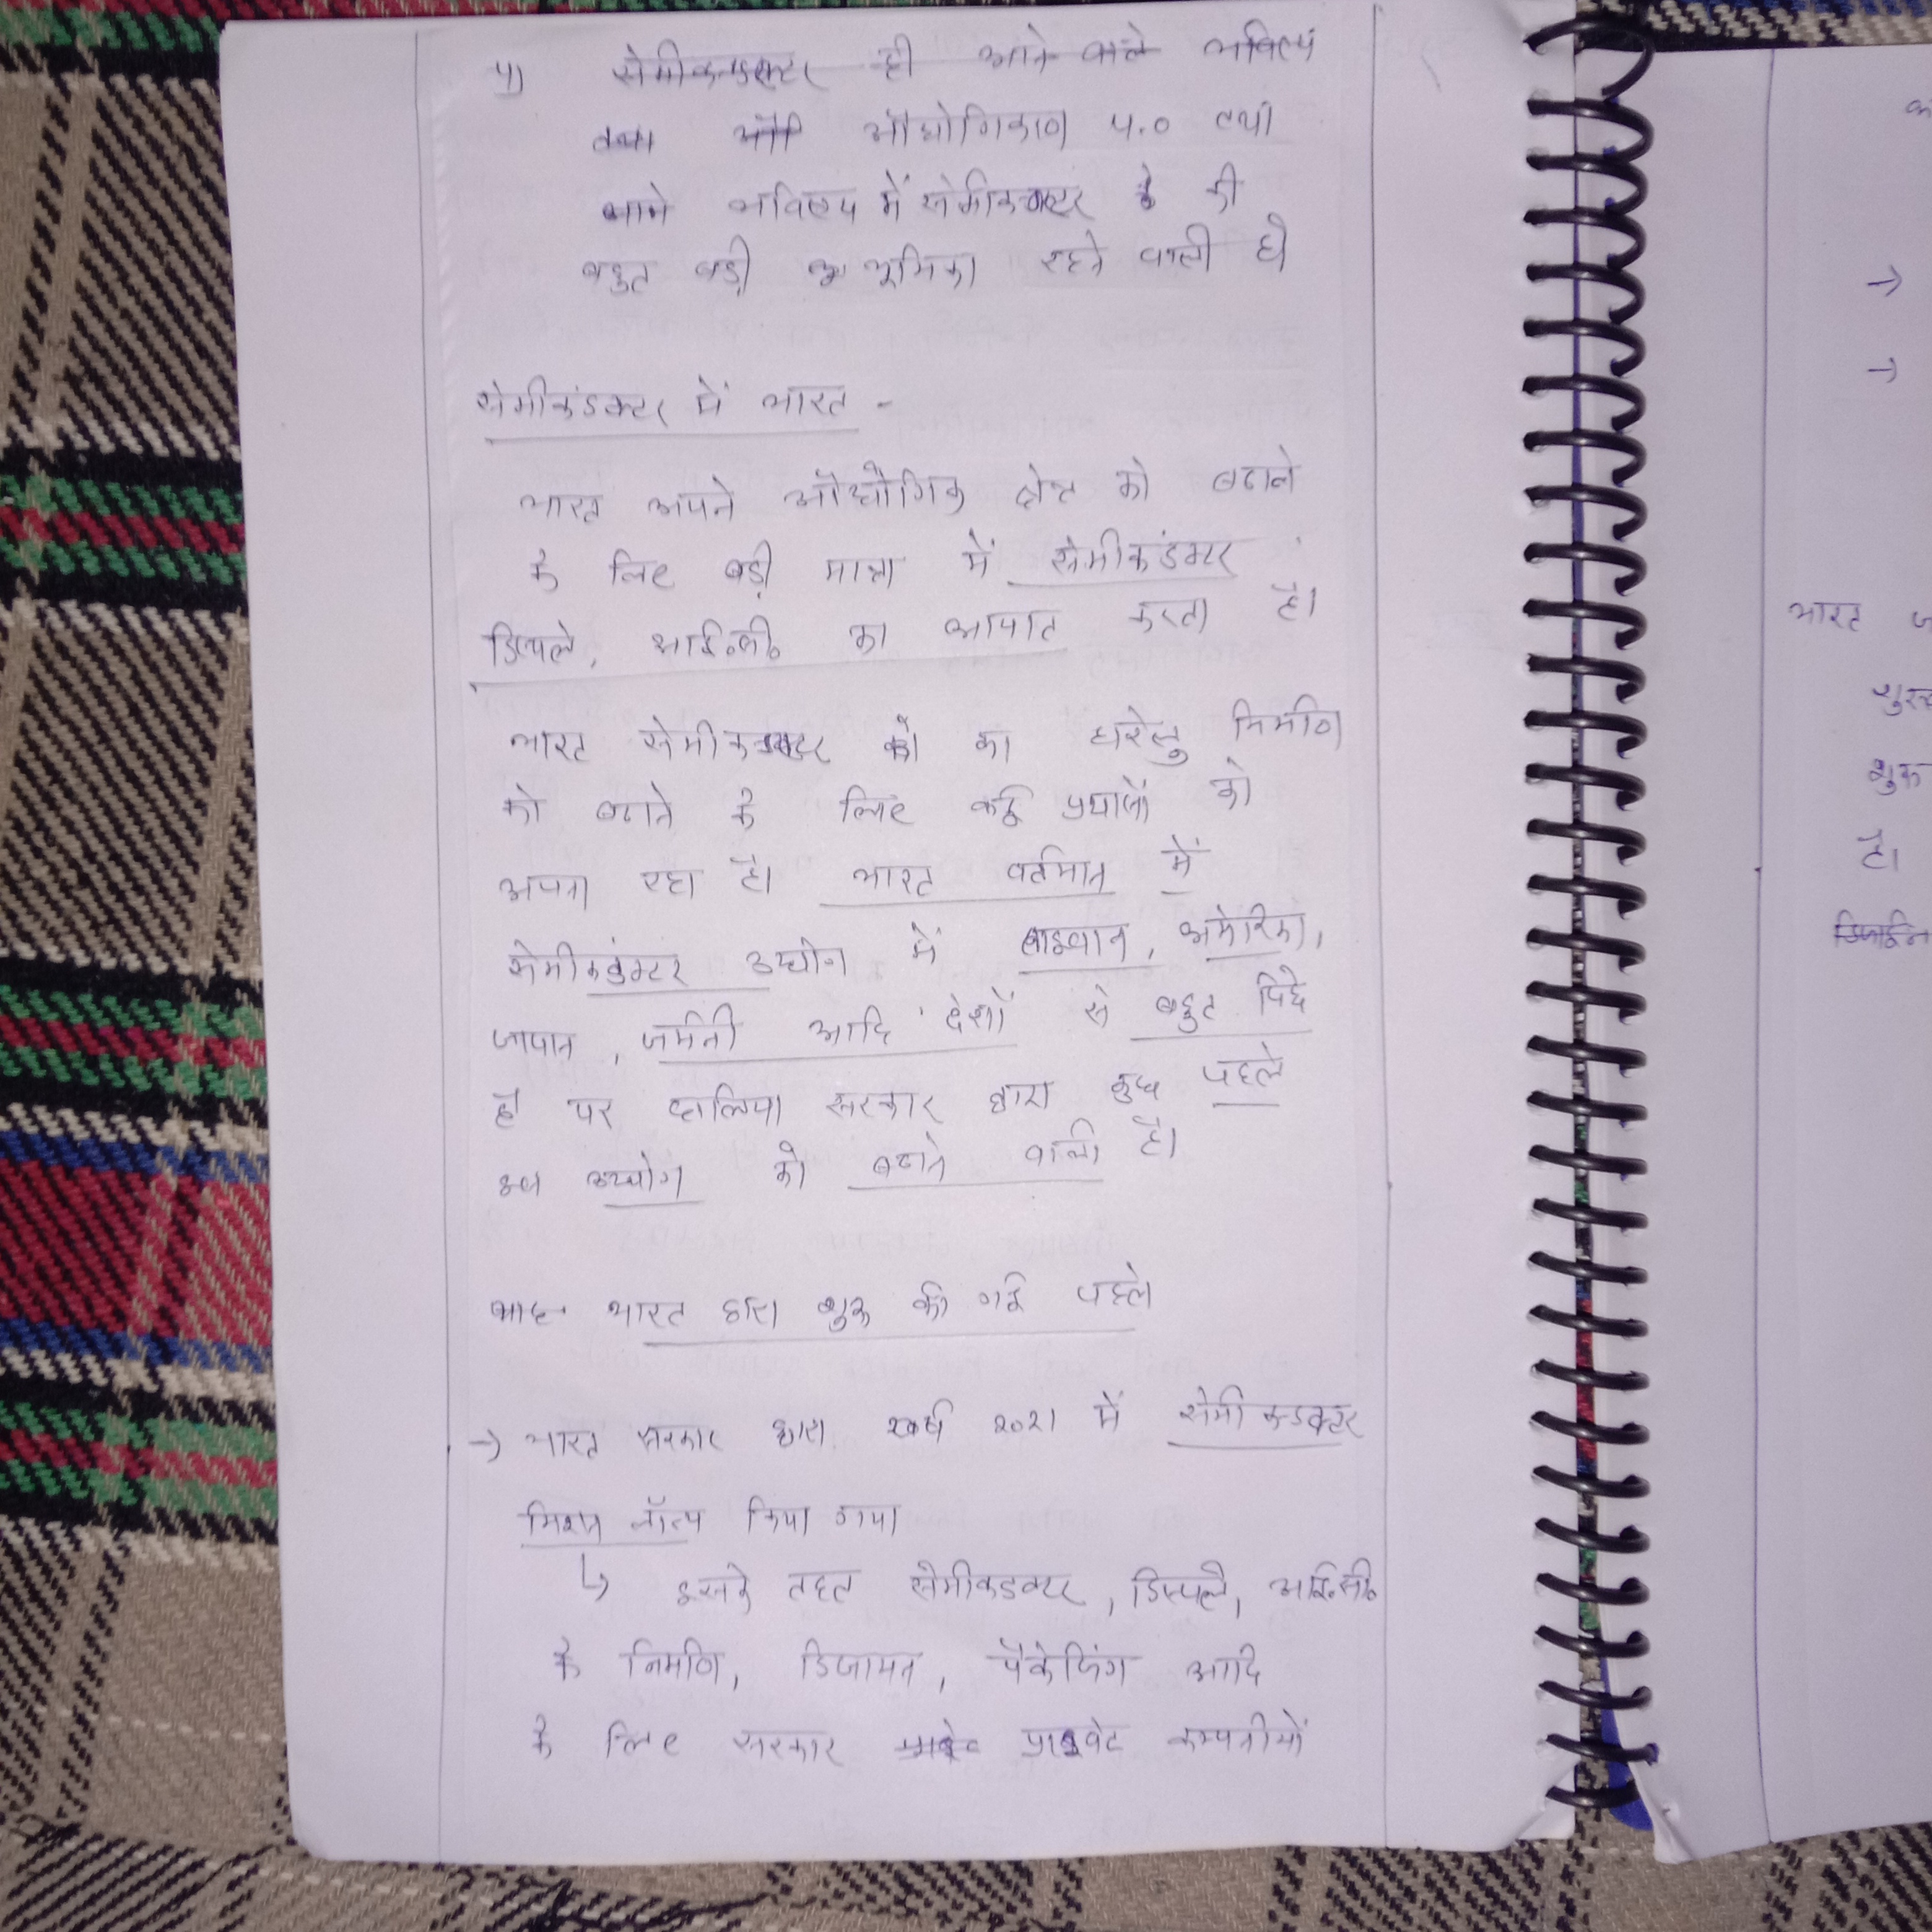 4) सेमीकन्डक्टर ही आने वाले भविष्य
तथा औ औद्योगिकरण 4.0 तथा
आने भविष्य में सेमीकन्डक्टर की
बहुत बड़ी भूमिका रहने वाली है
सेमीकंडक्टर में भारत -
भारत अपने औद्योगिक क्षेत्र को बढाने
के लिए बड़ी मात्रा में सेमीकंडक्टर
डिस्पले, आई०सी० का आयात करता है।
भारत सेमीकन्डक्टर को का घरेलु निर्माण
को बढाने के लिए कई प्रयासों को
अपना रहा है। भारत वर्तमान में
सेमीकंडक्टर उद्योग में ताइवान, अमेरिका,
जापान, जर्मनी आदि देशों से बहुत पिछे
है पर हालिया सरकार द्वारा कुछ पहले
इस उद्योग को बढाने वाली है।
भारत द्वारा शुरू की गई पहले
→ भारत सरकार द्वारा वर्ष 2021 में सेमीकन्डक्टर
मिशन लॉन्च किया गया
↳ इसके तहत सेमीकंडक्टर, डिस्पले, आई०सी०
के निर्माण, डिजायन, पैकेजिंग आदि
के लिए सरकार प्राइवेट कम्पनीयों
→
→
भारत
शुरू
है।
डिजाईन